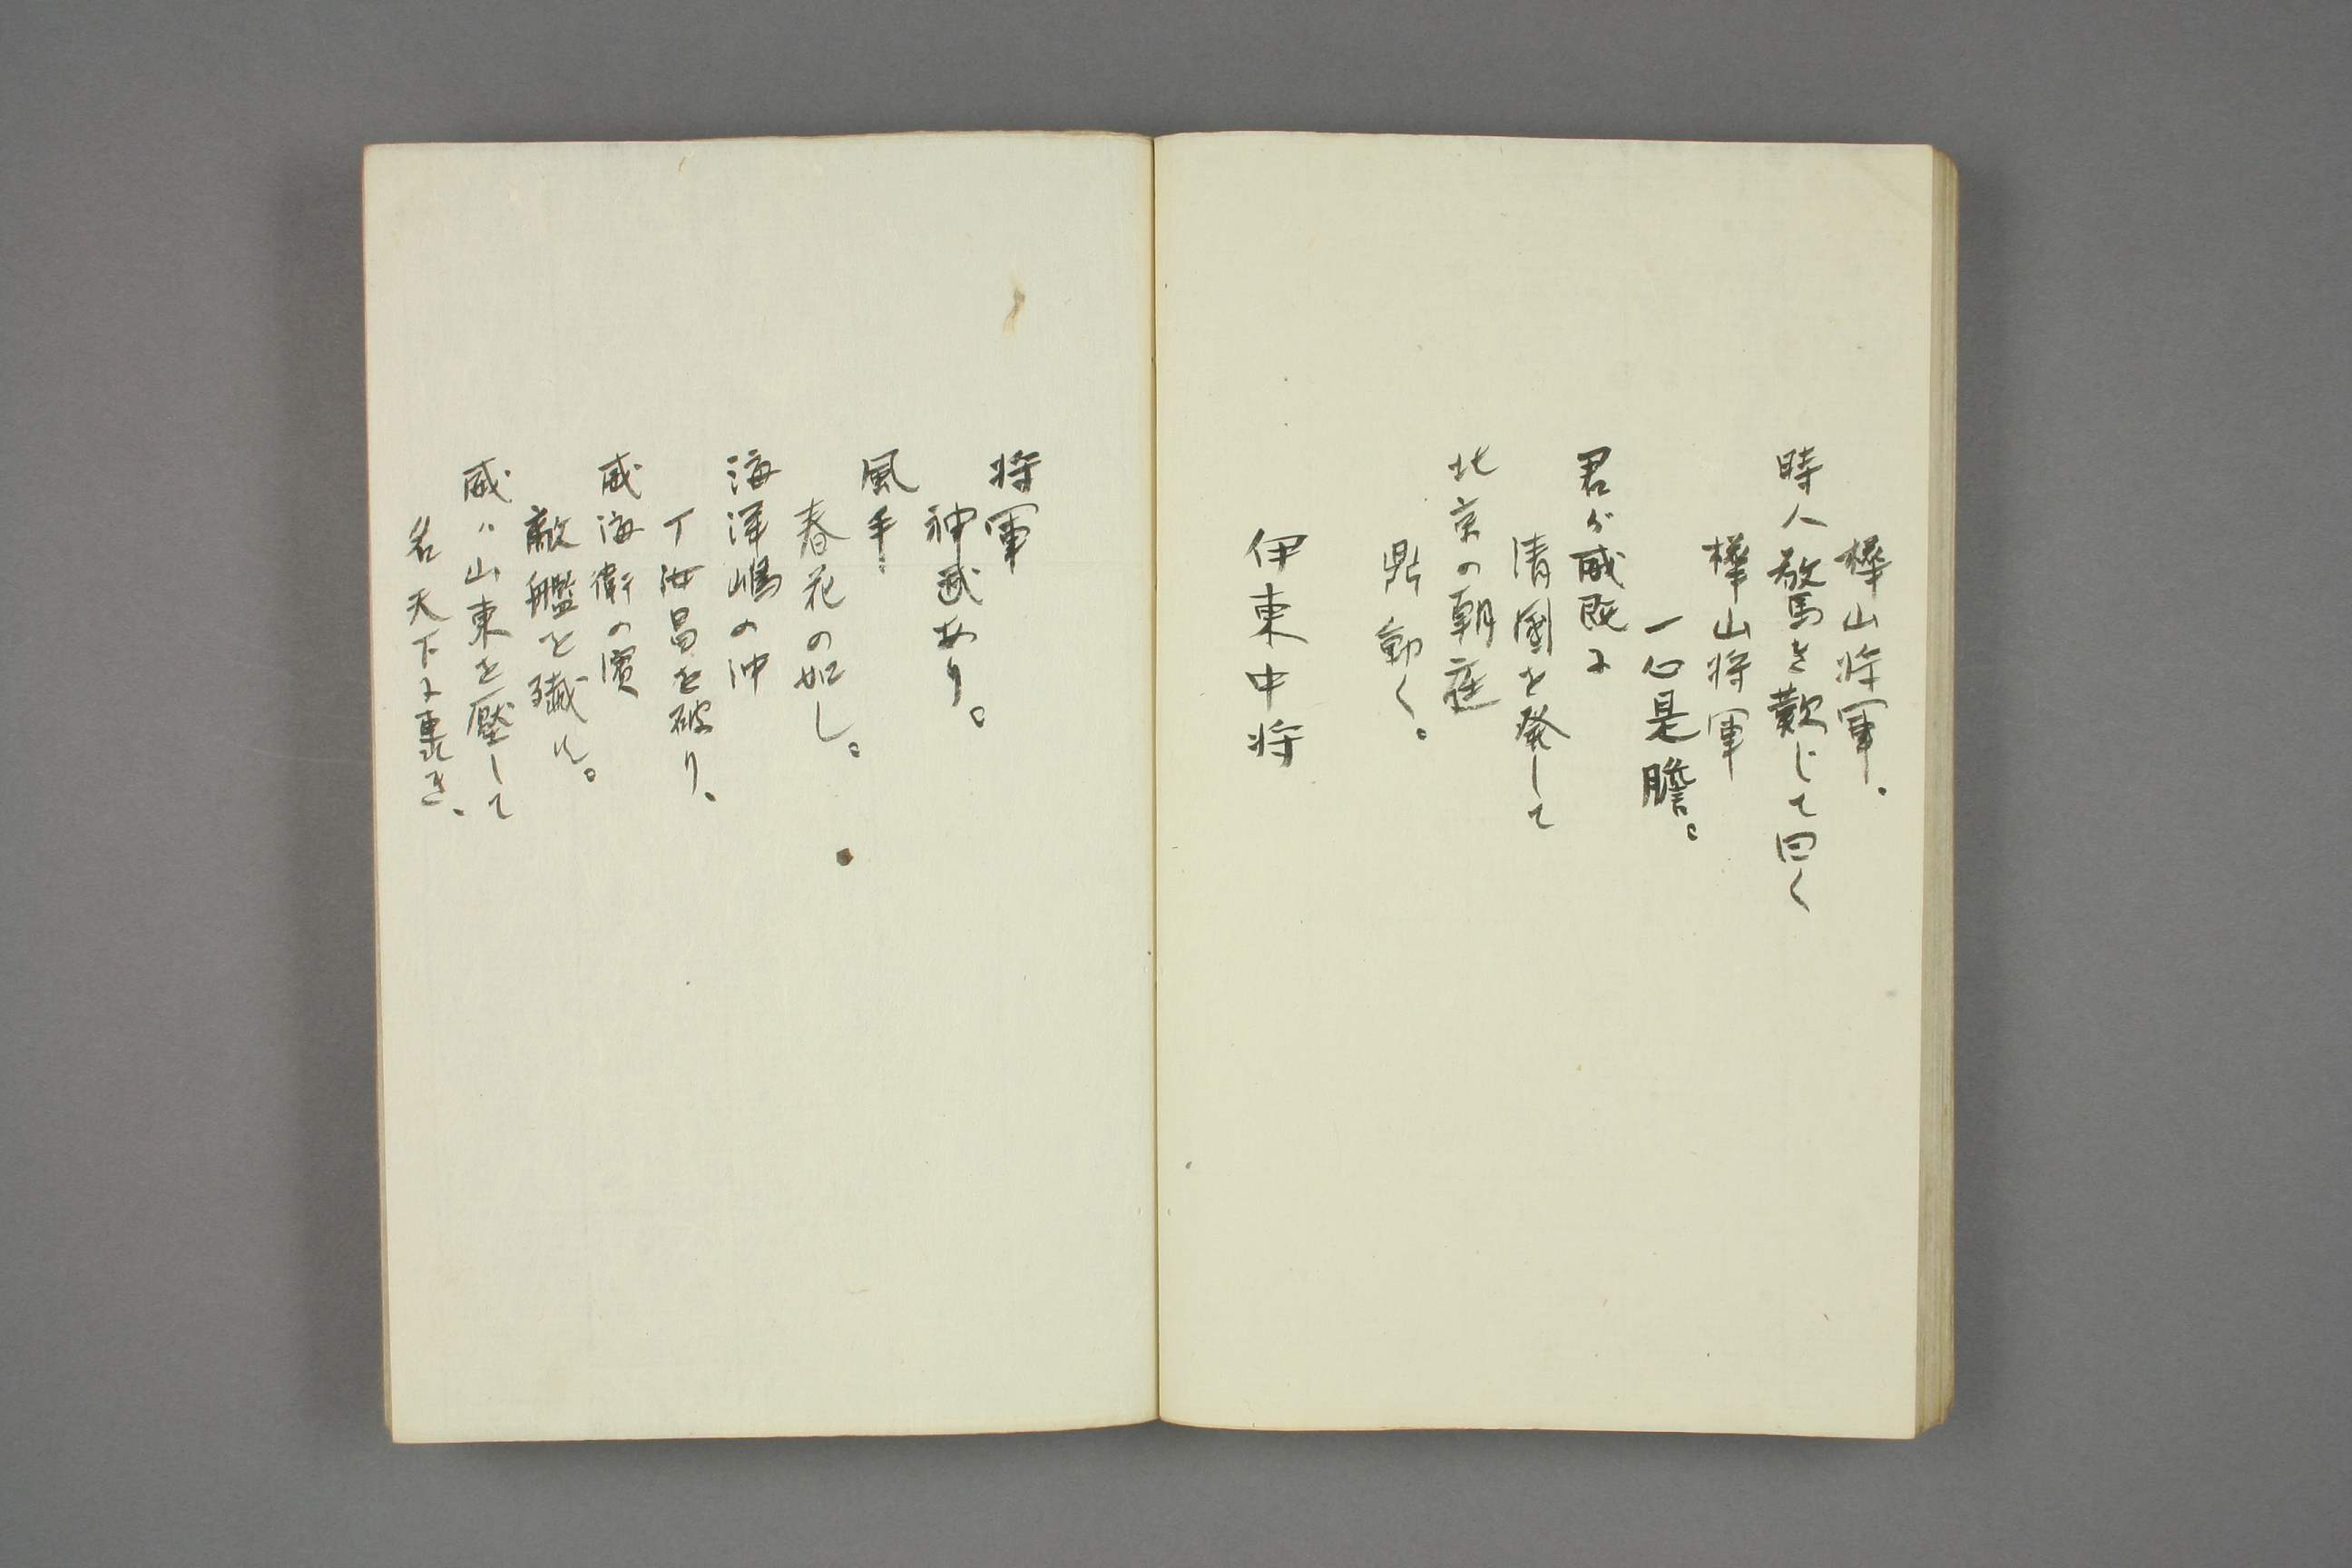 樺山将軍、
時人驚き歎じて曰く
樺山将軍
一心是膽。
君が威既に
清國を発して
北京の朝庭
鼎動く。
伊東中将
将軍
神武あり。
風手
春花の如し。
海洋嶋の沖
丁汝昌を破り、
威海衛の濱
敵艦を殲ん。
威ハ山東を壓して
名天下に轟き、